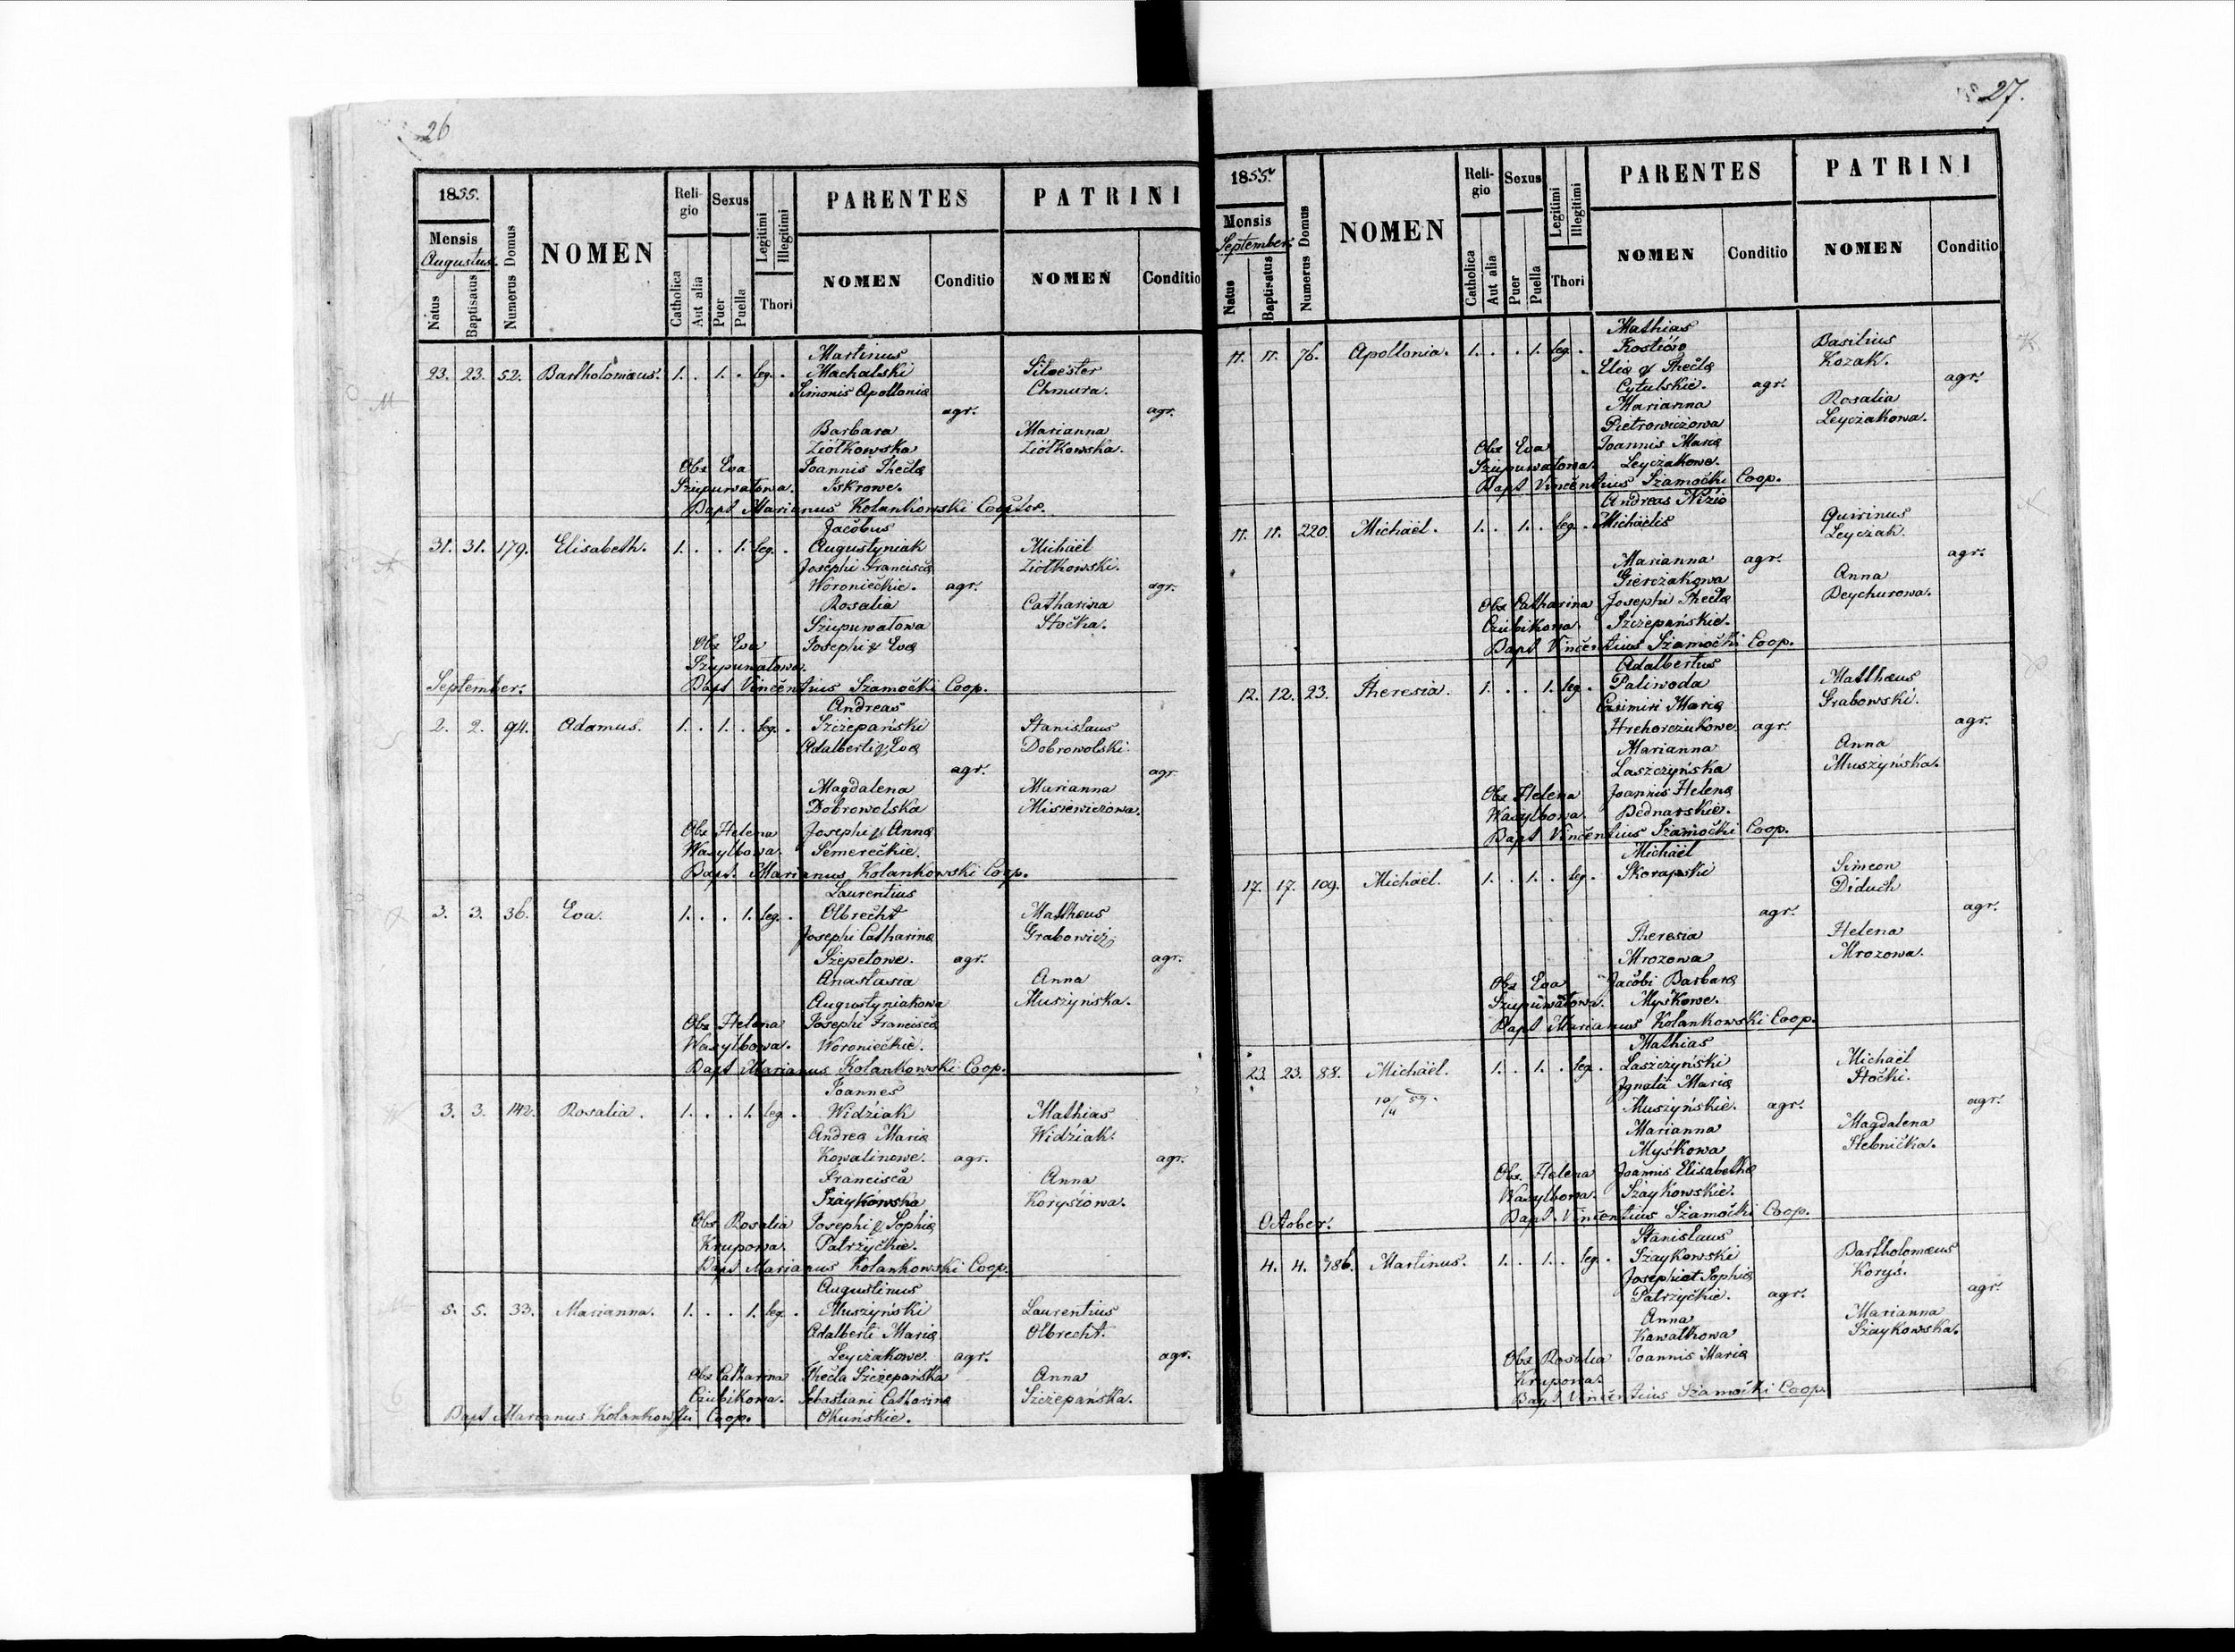 26
1855.
Mensis
Augustus.
Natus
Baptisatus
Numerus Domus
NOMEN
Religio
Catholica
Aut alia
Sexus
Puer
Puella
Legitimi
Illegitimi
Thori
PARENTES
NOMEN
Conditio
PATRINI
NOMEN
Conditio
Martinus
23. 23. 52. Bartholomæus. 1. . 1. . leg. . Machalski Silvester
Simonis Apolloniæ Chmura.
agr. agr.
Barbara Marianna
Ziółkowska Ziółkowska.
Obs Eva Joannis Theclæ
Szupuwałowa. Iskrowe.
Bapt Marianus Kolankowski Cooptor.
Jacobus
31. 31. 179. Elisabeth. 1. . . 1. leg. . Augustyniak Michaël
Josephi Franciscæ Ziółkowski.
Woronieckie. agr. agr.
Rosalia Catharina
Szupuwałowa Stocka.
Obs Eva Josephi & Evæ
Szupuwałowa.
September. Bapt Vincentius Szamocki Coop.
Andreas
2. 2. 94. Adamus. 1. . 1. . leg. . Szczepański Stanislaus
Adalberti & Evæ Dobrowolski
agr. agr
Magdalena Marianna
Dobrowolska Misiewiczowa.
Obs Helena Josephi & Annæ
Wasylbowa. Semereckie.
Bapt. Marianus Kolankowski Coop.
Laurentius
3. 3. 36. Eva. 1. . . 1. leg. . Olbrecht Mathæus
Josephi Catharinæ Grabowicz
Szepetowe. agr. agr.
Anastasia Anna
Augustyniakowa Muszyńska.
Obs Helena Josephi Franciscæ
Wasylbowa. Woronieckie.
Bapt Marianus Kolankowski Coop.
Joannes
3. 3. 142. Rosalia. 1. . . 1. leg. . Widziak Mathias
Andreæ Mariæ Widziak.
Kowalinowe. agr. agr.
Francisca Anna
Szaykowska Korysiowa.
Obs Rosalia Josephi & Sophiæ
Krupowa. Patrzyckie.
Bapt Marianus Kolankowski Coop.
Augustinus
5. 5. 33. Marianna. 1. . . 1. leg. . Muszyński Laurentius
Adalberti Mariæ Olbrecht.
Leyczakowe. agr. agr.
Obs Catharina Thecla Szczepańska Anna
Czubikowa. Sebastiani Catharinæ Szczepańska.
Bapt Marianus Kolankowski Coop. Okuńskie.
27.
1855.
Mensis
September.
Natus
Baptisatus
Numerus Domus
NOMEN
Religio
Catholica
Aut alia
Sexus
Puer
Puella
Legitimi
Illegitimi
Thori
PARENTES
NOMEN
Conditio
PATRINI
NOMEN
Conditio
Mathias
11. 11. 76. Apollonia. 1. . . 1. leg. . Kostiów Basilius
Eliæ & Theclæ Kozak.
Cytulskie. agr. agr.
Marianna Rosalia
Pietrowiczowa Leyczakowa.
Obs Eva Joannis Mariæ
Szupuwałowa. Leyczakowe.
Bapt Vincentius Szamocki Coop.
Andreas Nizio
11. 11. 220. Michaël. 1. . 1. . leg. . Michaëlis Quirinus
Leyczak.
Marianna agr. agr.
Gierczakowa Anna
Obs Catharina Josephi Theclæ Deychurowa.
Czubikowa. Szczepańskie.
Bapt Vincentius Szamocki Coop.
Adalbertus
12. 12. 23. Theresia. 1. . . 1. leg. . Paliwoda Matthæus
Casimiri Mariæ Grabowski.
Hrehorczukowe. agr. agr.
Marianna Anna
Laszczyńska Muszyńska.
Obs Helena Joannis Helenæ
Wasylbowa. Bednarskie.
Bapt Vincentius Szamocki Coop.
Michaël
17. 17. 109. Michaël. 1. . 1. . leg. . Skorapski Simeon
Diduch
agr. agr.
Theresia Helena
Mrozowa Mrozowa.
Obs Eva Jacobi Barbaræ
Szupuwałowa. Myskowe.
Bapt Marianus Kolankowski Coop.
Mathias
23. 23. 88. Michaël. 1. . 1. . leg. . Laszczyński Michaël
Ignatii Mariæ Stocki.
Muszyńskie. agr. agr.
Marianna Magdalena
Myśkowa Stebnicka.
Obs. Helena Joannis Elisabethæ
Wasylbowa. Szaykowskie.
October. Bapt. Vincentius Szamocki Coop.
Stanislaus
4. 4. 186. Martinus. 1. . 1. . leg. . Szaykowski Bartholomæus
Josephi et Sophiæ Koryś.
Patrzyckie. agr. agr.
Anna Marianna
Kawałkowa Szaykowska.
Obs Rosalia Joannis Mariæ
Krupowa.
Bapt Vincentius Szamocki Coop.